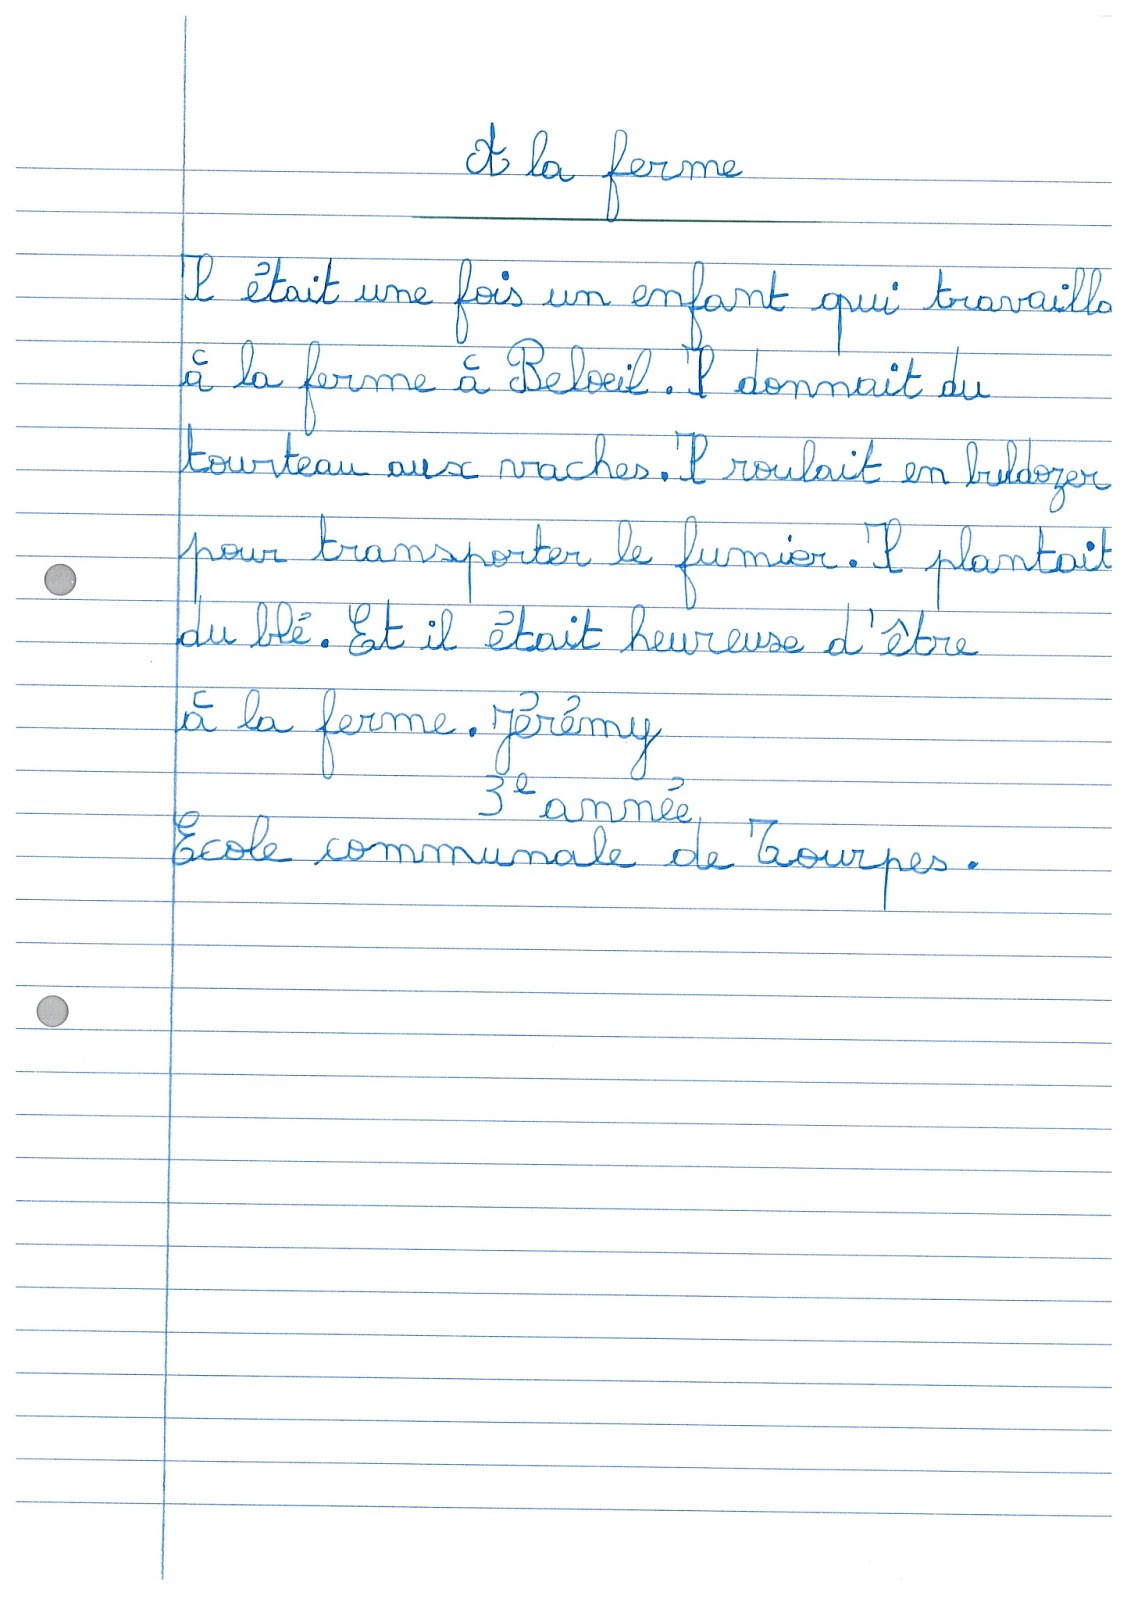 A la ferme
Il était une fois un enfant qui travailla
à la ferme à Beloeil. Il donnait du
tourteau aux vaches. Il roulait en buldozer
pour transporter le fumier. Il plantait
du blé. Et il était heureuse d'être
à la ferme. Jérémy
3e année
Ecole communale de Tourpes.